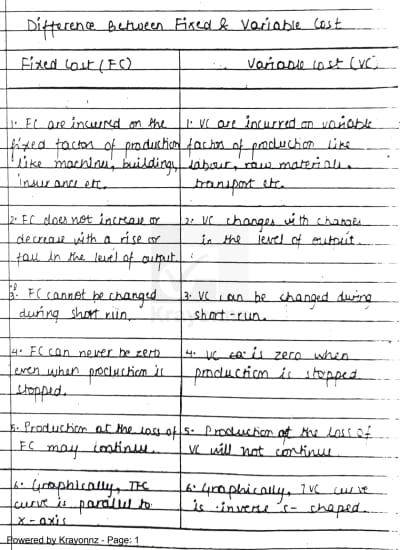 Difference Between Fixed & Variable Cost
Fixed Cost (FC)
Variable cost (VC)
1. FC are incurred on the
fixed factors of production
like machine, building,
insurance etc.
1. VC are incurred on variable
factors of production like
labour, raw materials.
transport etc.
2. FC does not increase or
decrease with a rise or
fall in the level of output.
2. VC changes with changes
in the level of output.
3. FC cannot be changed
during short run.
3. VC can be changed during
short-run.
4. FC can never be zero
even when production is
stopped.
4. VC is zero when
production is stopped
5. Production at the loss of
FC may continue.
5. Production at the loss of
VC will not continue
6. Graphically, TFC
curve is parallel to
x-axis
6. Graphically, TVC curve
is inverse s- shaped.
Powered by Krayonnz - Page: 1